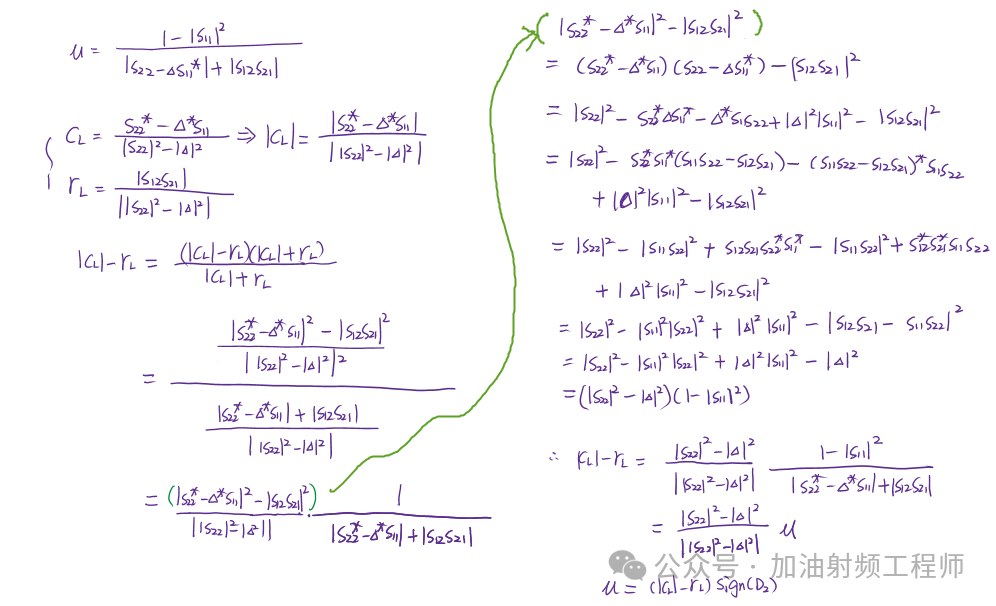 u = \frac{1-|S_{11}|^2}{|S_{22}-\Delta S_{11}^*|+|S_{12}S_{21}|}
C_L = \frac{S_{22}^*-\Delta^*S_{11}}{|S_{22}|^2-|\Delta|^2} \Rightarrow |C_L| = \frac{|S_{22}^*-\Delta^*S_{11}|}{||S_{22}|^2-|\Delta|^2|}
r_L = \frac{|S_{12}S_{21}|}{||S_{22}|^2-|\Delta|^2|}
|C_L|-r_L = \frac{(|C_L|-r_L)(|C_L|+r_L)}{|C_L|+r_L}
= \frac{\frac{|S_{22}^*-\Delta^*S_{11}|^2-|S_{12}S_{21}|^2}{||S_{22}|^2-|\Delta|^2|^2}}{\frac{|S_{22}^*-\Delta^*S_{11}|+|S_{12}S_{21}|}{||S_{22}|^2-|\Delta|^2|}}
= \frac{(|S_{22}^*-\Delta^*S_{11}|^2-|S_{12}S_{21}|^2)}{||S_{22}|^2-|\Delta^2||} \cdot \frac{1}{|S_{22}^*-\Delta^*S_{11}|+|S_{12}S_{21}|}
(|S_{22}^*-\Delta^*S_{11}|^2-|S_{12}S_{21}|^2)
= (S_{22}^*-\Delta^*S_{11})(S_{22}-\Delta S_{11}^*)-|S_{12}S_{21}|^2
= |S_{22}|^2-S_{22}^*\Delta S_{11}^*-\Delta^*S_{11}S_{22}+|\Delta|^2|S_{11}|^2-|S_{12}S_{21}|^2
= |S_{22}|^2-S_{22}^*S_{11}^*(S_{11}S_{22}-S_{12}S_{21})-(S_{11}S_{22}-S_{12}S_{21})^*S_{11}S_{22}
+|\Delta|^2|S_{11}|^2-|S_{12}S_{21}|^2
= |S_{22}|^2-|S_{11}S_{22}|^2+S_{12}S_{21}S_{22}^*S_{11}^*-|S_{11}S_{22}|^2+S_{12}^*S_{21}^*S_{11}S_{22}
+|\Delta|^2|S_{11}|^2-|S_{12}S_{21}|^2
= |S_{22}|^2-|S_{11}|^2|S_{22}|^2+|\Delta|^2|S_{11}|^2-|S_{12}S_{21}-S_{11}S_{22}|^2
= |S_{22}|^2-|S_{11}|^2|S_{22}|^2+|\Delta|^2|S_{11}|^2-|\Delta|^2
= (|S_{22}|^2-|\Delta|^2)(1-|S_{11}|^2)
∴ |C_L|-r_L = \frac{|S_{22}|^2-|\Delta|^2}{||S_{22}|^2-|\Delta|^2|} \frac{1-|S_{11}|^2}{|S_{22}^*-\Delta^*S_{11}|+|S_{12}S_{21}|}
= \frac{|S_{22}|^2-|\Delta|^2}{||S_{22}|^2-|\Delta|^2|} u
u = (|C_L|-r_L) sign(D_2)
公众号 · 加油射频工程师